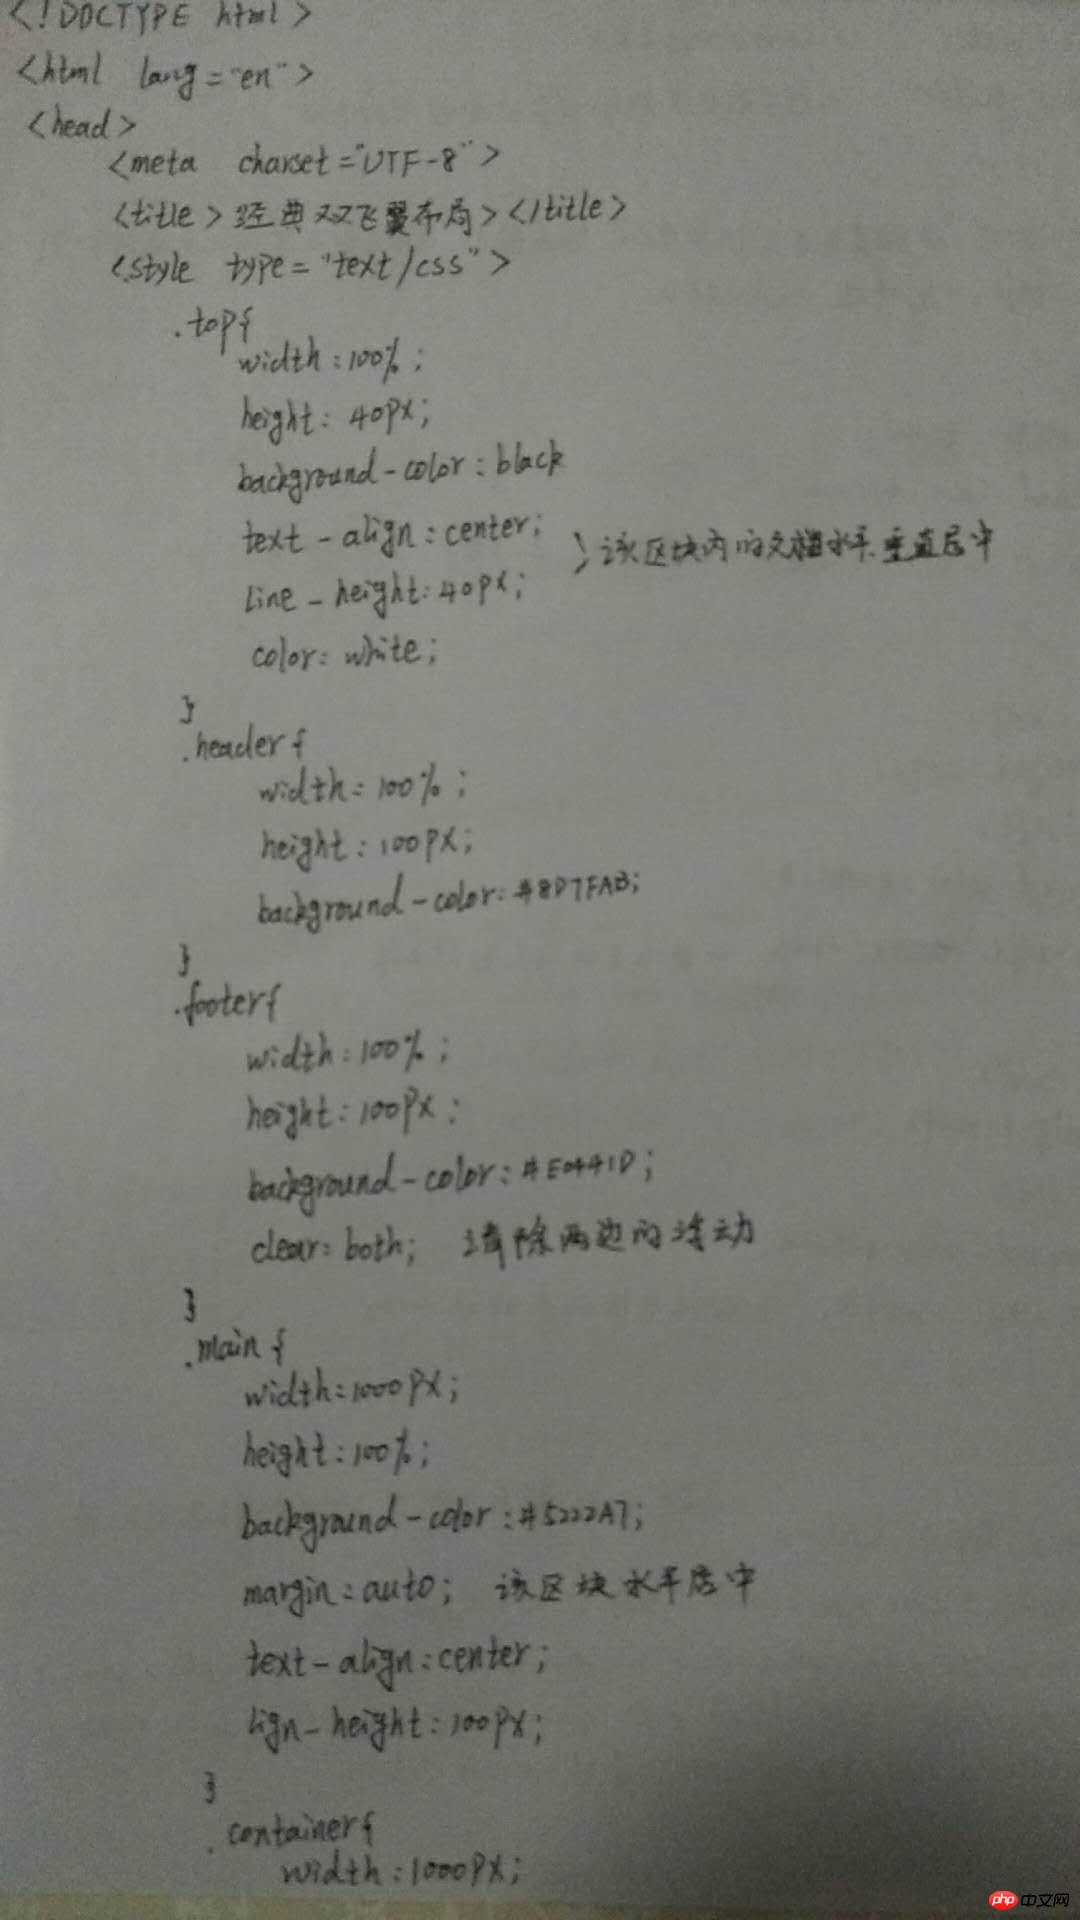 <!DOCTYPE html>
<html lang="en">
<head>
<meta charset="UTF-8">
<title>经典双飞翼布局></title>
<style type="text/css">
.top{
width:100%;
height:40px;
background-color:black
text-align:center;
}该区块内的文档水平垂直居中
line-height:40px;
color:white;
}
.header{
width:100%;
height:100px;
background-color:#8D7FAB;
}
.footer{
width:100%;
height:100px;
background-color:#E0441D;
clear:both; 清除两边的浮动
}
.main{
width:1000px;
height:100%;
background-color:#5222A7;
margin:auto; 该区块水平居中
text-align:center;
lign-height:100px;
}
.container{
width:1000px;
php中文网